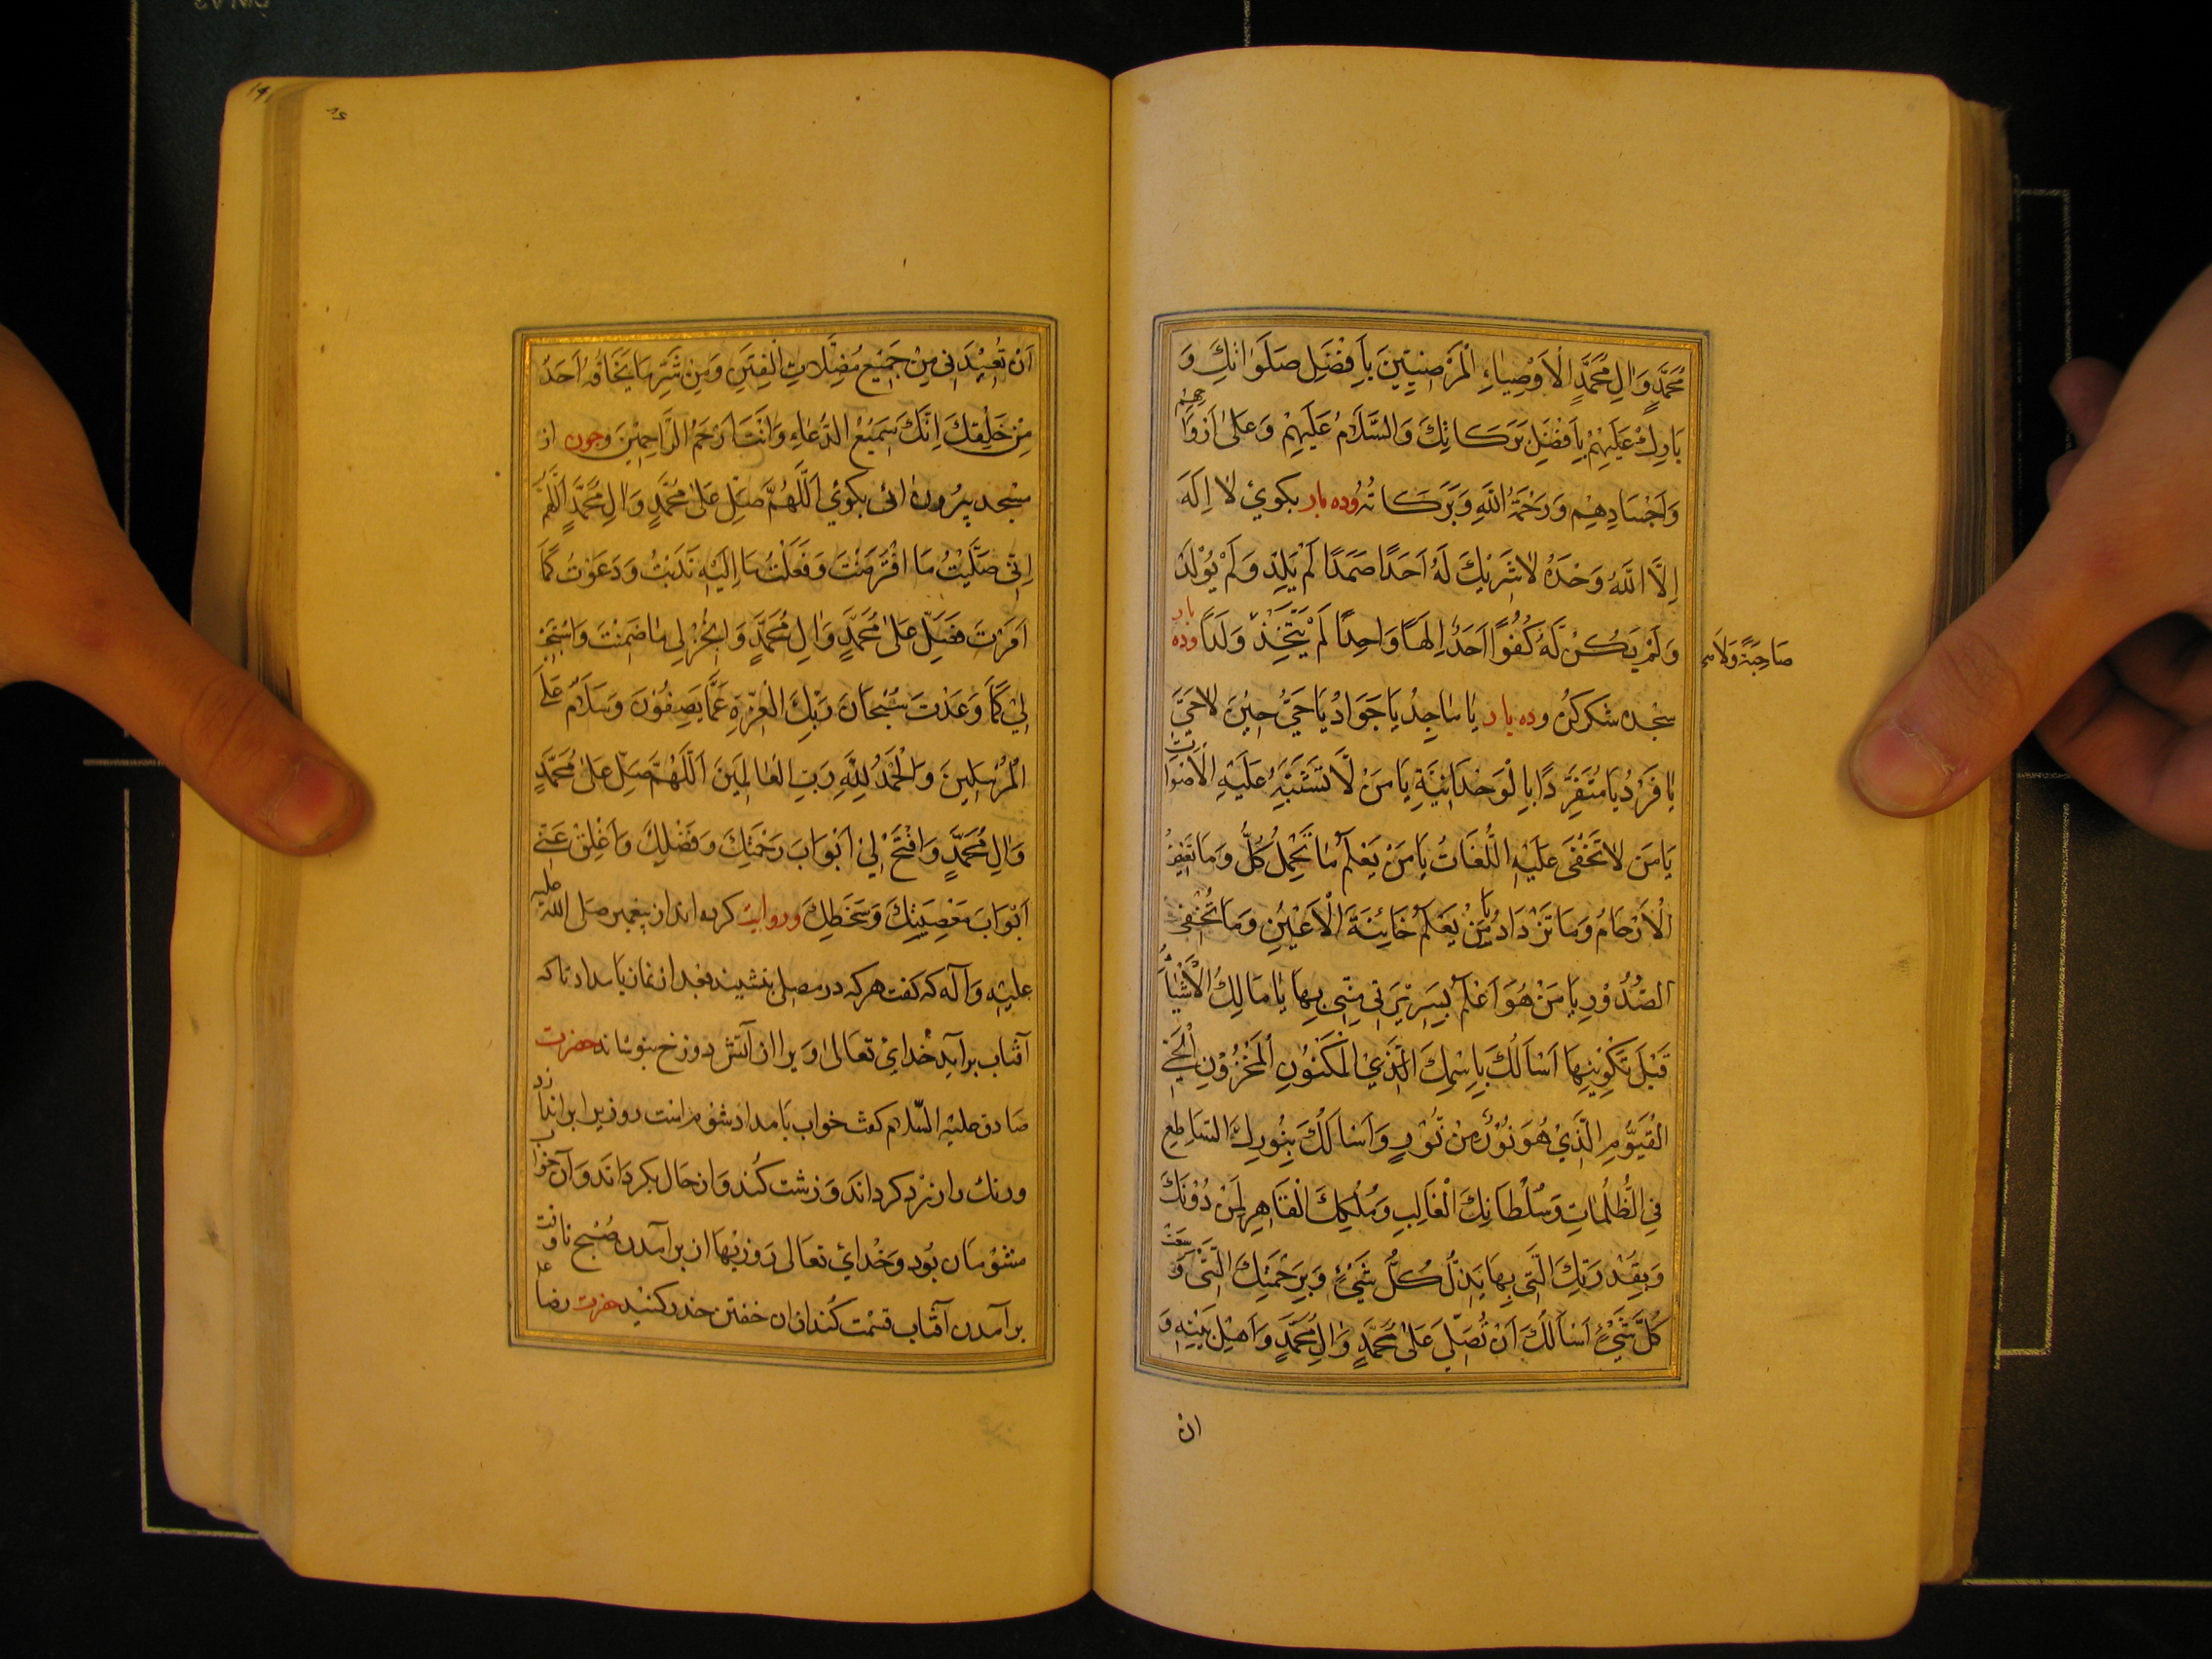 مُحَمَّدٍ وَالِ مُحَمَّدٍ الْاَوْصِيَاءِ الْمَرْضِيِّينَ بِاَفْضَلِ صَلَوَاتِكَ وَ
بَارِكْ عَلَيْهِمْ بِاَفْضَلِ بَرَكَاتِكَ وَالسَّلَامُ عَلَيْهِمْ وَعَلٰى اَرْوَاحِهِمْ
وَاَجْسَادِهِمْ وَرَحْمَةُ اللّٰهِ وَبَرَكَاتُهُ وده بار بكوي لَا اِلٰهَ
اِلَّا اللّٰهُ وَحْدَهُ لَا شَرِيْكَ لَهُ اَحَدًا صَمَدًا لَمْ يَلِدْ وَلَمْ يُوْلَدْ
وَلَمْ يَكُنْ لَهُ كُفُوًا اَحَدٌ اِلٰهًا وَاحِدًا لَمْ يَتَّخِذْ وَلَدًا وده بار
صَاحِبَةً وَلَا
سجده شكر كن وده بار يَا مَاجِدُ يَا جَوَادُ يَا حَيُّ حِيْنَ لَا حَيَّ
يَا فَرْدُ يَا مُتَفَرِّدًا بِالْوَحْدَانِيَّةِ يَا مَنْ لَا تَشْتَبِهُ عَلَيْهِ الْاَصْوَاتُ
يَا مَنْ لَا تَخْفٰى عَلَيْهِ اللُّغَاتُ يَا مَنْ يَعْلَمُ مَا تَحْمِلُ كُلُّ وَمَا تَغِيْضُ
الْاَرْحَامُ وَمَا تَزْدَادُ يَا مَنْ يَعْلَمُ خَائِنَةَ الْاَعْيُنِ وَمَا تُخْفِي
الصُّدُوْرِ يَا مَنْ هُوَ اَعْلَمُ بِسَرِيْرَتِي مِنِّي بِهَا يَا مَالِكَ الْاَشْيَاءِ
قَبْلَ تَكْوِيْنِهَا اَسْاَلُكَ بِاِسْمِكَ الَّذِيْ الْمَكْنُوْنِ الْمَخْزُوْنِ الْحَيِّ
الْقَيُّوْمِ الَّذِيْ هُوَ نُوْرٌ مِنْ نُوْرٍ وَاَسْاَلُكَ بِنُورِكَ السَّاطِعِ
فِي الظُّلُمَاتِ وَسُلْطَانِكَ الْغَالِبِ وَمُلْكِكَ الْقَاهِرِ لِمَنْ دُوْنَكَ
وَبِقُدْرَتِكَ الَّتِي بِهَا يَذِلُّ كُلُّ شَيْءٍ وَبِرَحْمَتِكَ الَّتِيْ وَسِعَتْ
كُلَّ شَيْءٍ اَسْاَلُكَ اَنْ تُصَلِّيَ عَلٰى مُحَمَّدٍ وَالِ مُحَمَّدٍ وَاَهْلِ بَيْتِهِ وَ
ان
اَنْ تُعِيْذَنِي مِنْ جَمِيْعِ مُضِلَّاتِ الْفِتَنِ وَمِنْ شَرِّ مَا يَخَافُهُ اَحَدٌ
مِنْ خَلْقِكَ اِنَّكَ سَمِيْعُ الدُّعَاءِ وَاَنْتَ اَرْحَمُ الرَّاحِمِيْنَ وچون از
مسجد بيرون ائى بكوئي اَللّٰهُمَّ صَلِّ عَلٰى مُحَمَّدٍ وَالِ مُحَمَّدٍ اَللّٰهُمَّ
اِنِّي صَلَّيْتُ مَا افْتَرَضْتَ وَفَعَلْتُ مَا اِلَيْهِ نَدَبْتَ وَدَعَوْتُ كَمَا
اَمَرْتَ فَصَلِّ عَلٰى مُحَمَّدٍ وَالِ مُحَمَّدٍ وَانْجُزْ لِي مَا ضَمِنْتَ وَاسْتَجِبْ
لِيْ كَمَا وَعَدْتَ سُبْحَانَ رَبِّكَ الْعِزَّةِ عَمَّا يَصِفُوْنَ وَسَلَامٌ عَلَى
الْمُرْسَلِينَ وَالْحَمْدُ لِلّٰهِ رَبِّ الْعَالَمِيْنَ اَللّٰهُمَّ صَلِّ عَلٰى مُحَمَّدٍ
وَالِ مُحَمَّدٍ وَافْتَحْ لِيْ اَبْوَابَ رَحْمَتِكَ وَفَضْلِكَ وَاَغْلِقْ عَنِّي
اَبْوَابَ مَعْصِيَتِكَ وَسَخَطِكَ وروايت كرده اند از پيغمبر صلى اللّه عليه
عليه وآله كه كفت هركه در مصلى بنشيند بعد از نماز بامداد تا كه
آفتاب برآيد خداي تعالى ويرا از آتش دوزخ بپوشاند حضرت
صادق عليه السّلام كفت خواب بامداد شوم است روزيرا براند
ورنك را زرد كرداند وزشت كند واز حال بكرداند وآن خواب
مشؤمان بود وخداي تعالى روزيها از برآمدن صبح تا وقت
برآمدن آفتاب قسمت كند از ان خفتن حذر كنيد حضرت رضا